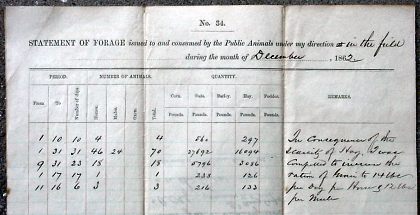 No. 34.
STATEMENT OF FORAGE issued to and consumed by the Public Animals under my direction in the field
during the month of December, 1862
PERIOD. NUMBER OF ANIMALS. QUANTITY.
From To Number of days. Horses. Mules. Oxen. Total. Corn. Oats. Barley. Hay. Fodder. REMARKS.
Pounds. Pounds. Pounds. Pounds. Pounds.
1 10 10 4 4 560 297
1 31 31 46 24 70 27692 16094
9 31 23 18 18 5796 3036
1 17 17 1 1 233 126
11 16 6 3 3 216 133
In Consequence of the
scarcity of Hay, I was
compelled to increase the
ration of Grain to 14 lbs
per Day per Horse & 12 lbs
per Mule